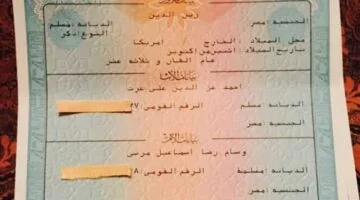 زين الدين
الجنسيه: مصر
الديانه: مسلم
محل الميلاد: الخارج امريكا
النوع: ذكر
تاريخ الميلاد: اثنين من اكتوبر
عام الفان و ثلاثه عشر
بيانات الأب
احمد عز الدين على عزت
الديانه: مسلم
الرقم القومى: ٢٧
الجنسيه: مصر
بيانات الأم
وسام رضا اسماعيل مرسى
الديانه: مسلمة
الرقم القومى: ٢٨
الجنسيه: مصر